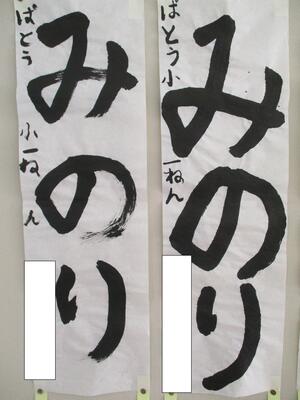 みのり
ばとう小一ねん
みのり
ばとう小一ねん